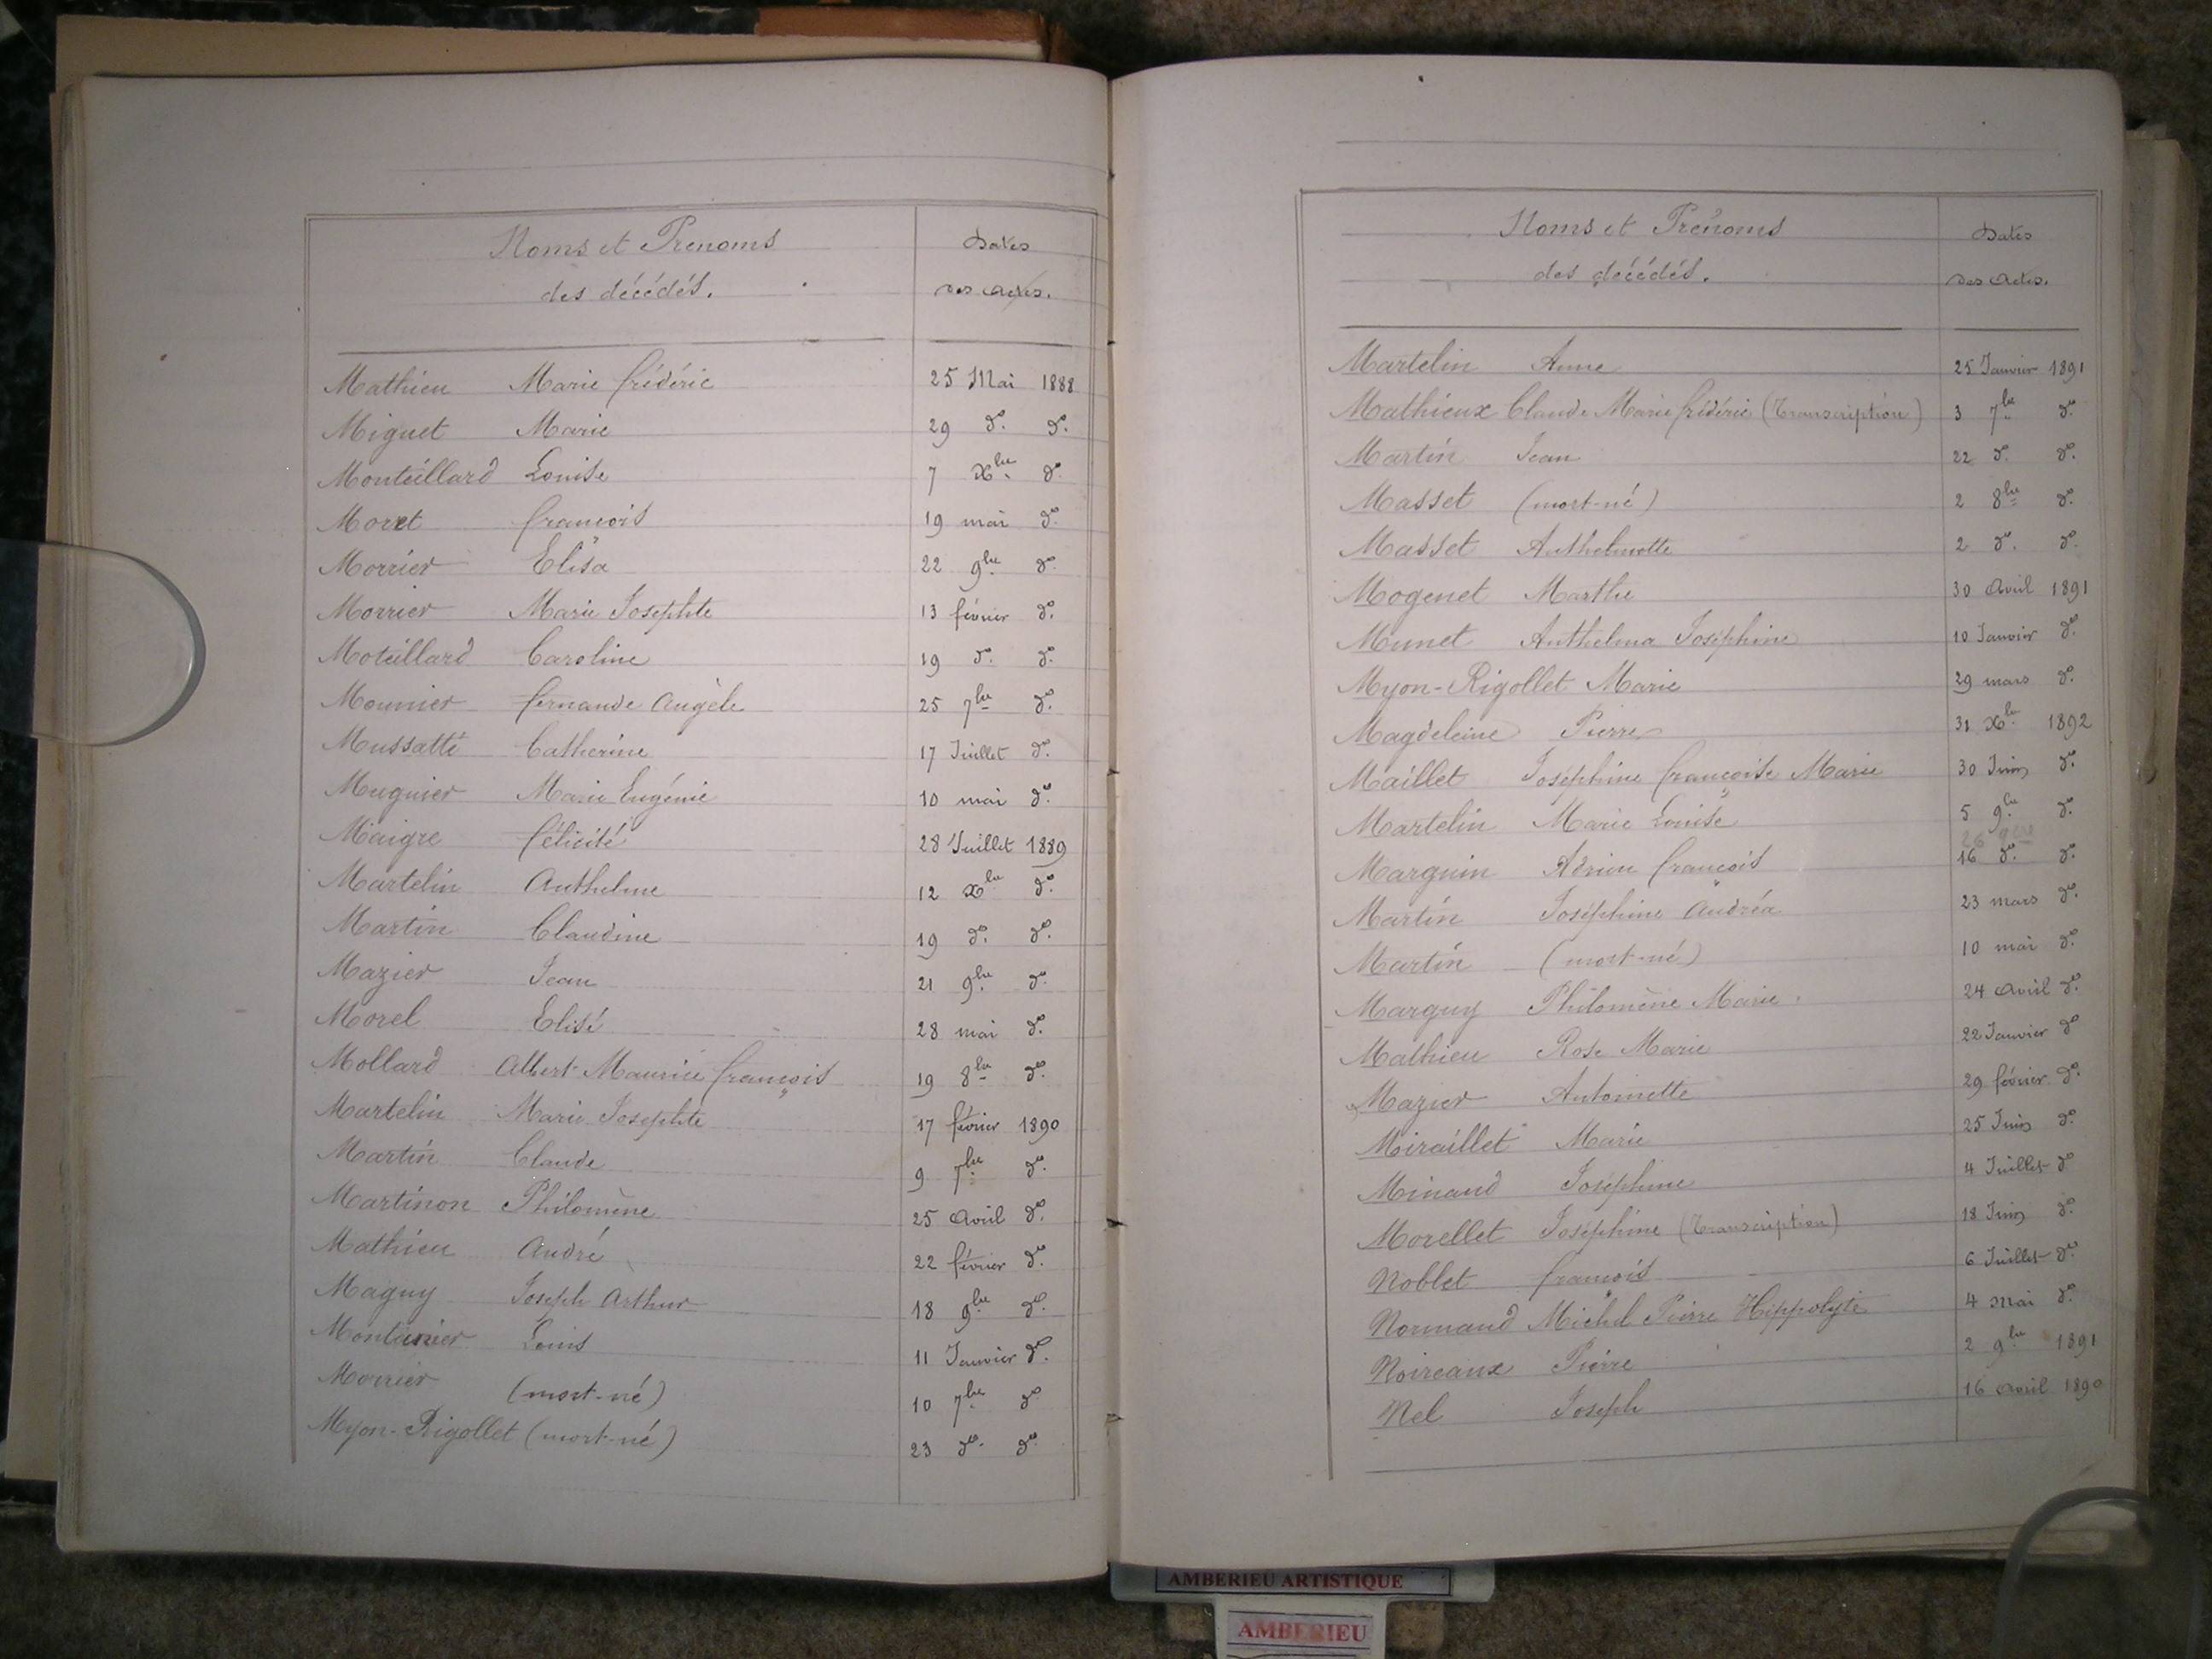 Noms et Prénoms
des décédés.
Dates
des actes.
Mathieu Marie frédéric 25 Mai 1888
Miguet Marie 29 do. do.
Monteillard Louise 7 Xbre do.
Moret françois 19 mai do.
Morrier Elisa 22 9bre do.
Morrier Marie Josephte 13 février do.
Moteillard Caroline 19 do. do.
Mounier fernande Angèle 25 7bre do.
Mussatte Catherine 17 Juillet do.
Mugnier Marie Eugénie 10 mai do.
Maigre félicité 28 Juillet 1889
Martelin Anthelme 12 Xbre do.
Martin Claudine 19 do. do.
Mazier Jean 21 9bre do.
Morel Elisé 28 mai do.
Mollard Albert Maurice françois 19 8bre do.
Martelin Marie Josephte 17 février 1890
Martin Claude 9 7bre do.
Martinon Philomène 25 Avril do.
Mathieu André 22 février do.
Maguy Joseph Arthur 18 9bre do.
Montanier Louis 11 Janvier do.
Morrier (mort-né) 10 7bre do.
Myon-Rigollet (mort-né) 23 do. do.
Noms et Prénoms
des décédés.
Dates
des actes.
Martelin Anne 25 Janvier 1891
Mathieux Claude Marie frédéric (Transcription) 3 7bre do.
Martin Jean 22 do. do.
Masset (mort-né) 2 8bre do.
Masset Anthelmette 2 do. do.
Mogenet Marthe 30 Avril 1891
Munet Anthelma Joséphine 10 Janvier do.
Myon-Rigollet Marie 29 mars do.
Magdeleine Pierre 31 Xbre 1892
Maillet Joséphine françoise Marie 30 Juin do.
Martelin Marie Louise 5 9bre do.
26 9bre
Marguin Adrien françois 16 do. do.
Martin Joséphine Andréa 23 mars do.
Martin (mort-né) 10 mai do.
Marguy Philomène Marie 24 Avril do.
Mathieu Rose Marie 22 Janvier do
Mazier Antoinette 29 février do.
Miraillet Marie 25 Juin do.
Minaud Joséphine 4 Juillet do
Morellet Joséphine (Transcription) 18 Juin do.
Noblet françois 6 Juillet do.
Normand Michel Pierre Hippolyte 4 Mai do.
Noireaux Pierre 2 9bre 1891
Nel Joseph 16 avril 1890
AMBERIEU ARTISTIQUE
AMBERIEU